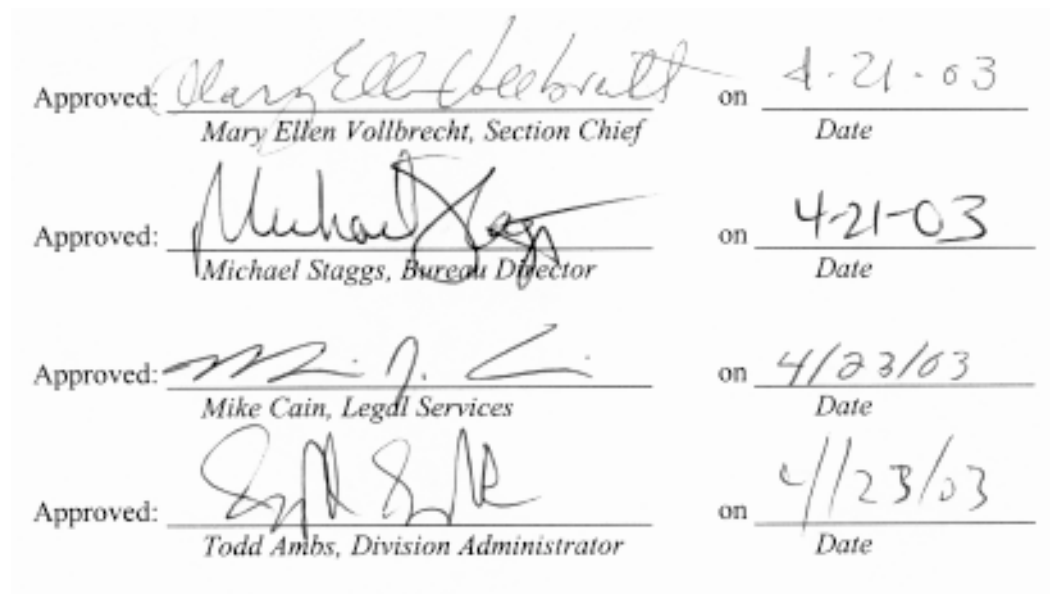 Approved: Mary Ellen Vollbrecht on 4-21-03
Mary Ellen Vollbrecht, Section Chief Date
Approved: Michael Staggs on 4-21-03
Michael Staggs, Bureau Director Date
Approved: on 4/23/03
Mike Cain, Legal Services Date
Approved: on 4/23/03
Todd Ambs, Division Administrator Date